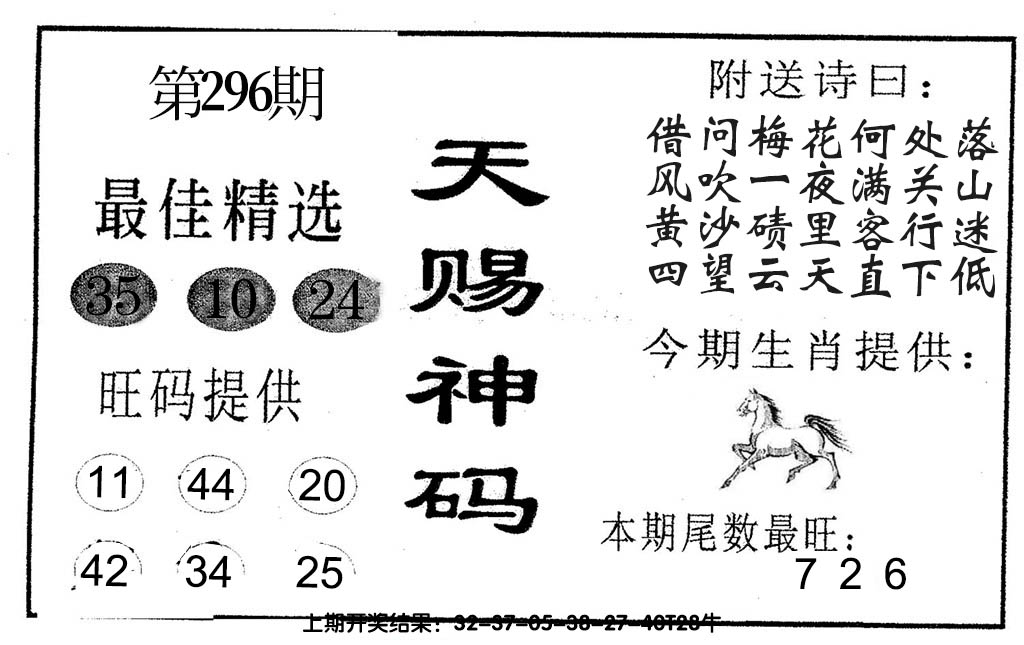 第296期
最佳精选
35 10 24
旺码提供
11 44 20
42 34 25
天赐神码
附送诗曰：
借问梅花何处落
风吹一夜满关山
黄沙碛里客行迷
四望云天直下低
今期生肖提供：
本期尾数最旺：
7 2 6
上期开奖结果：32-37-05-38-27-40T28牛